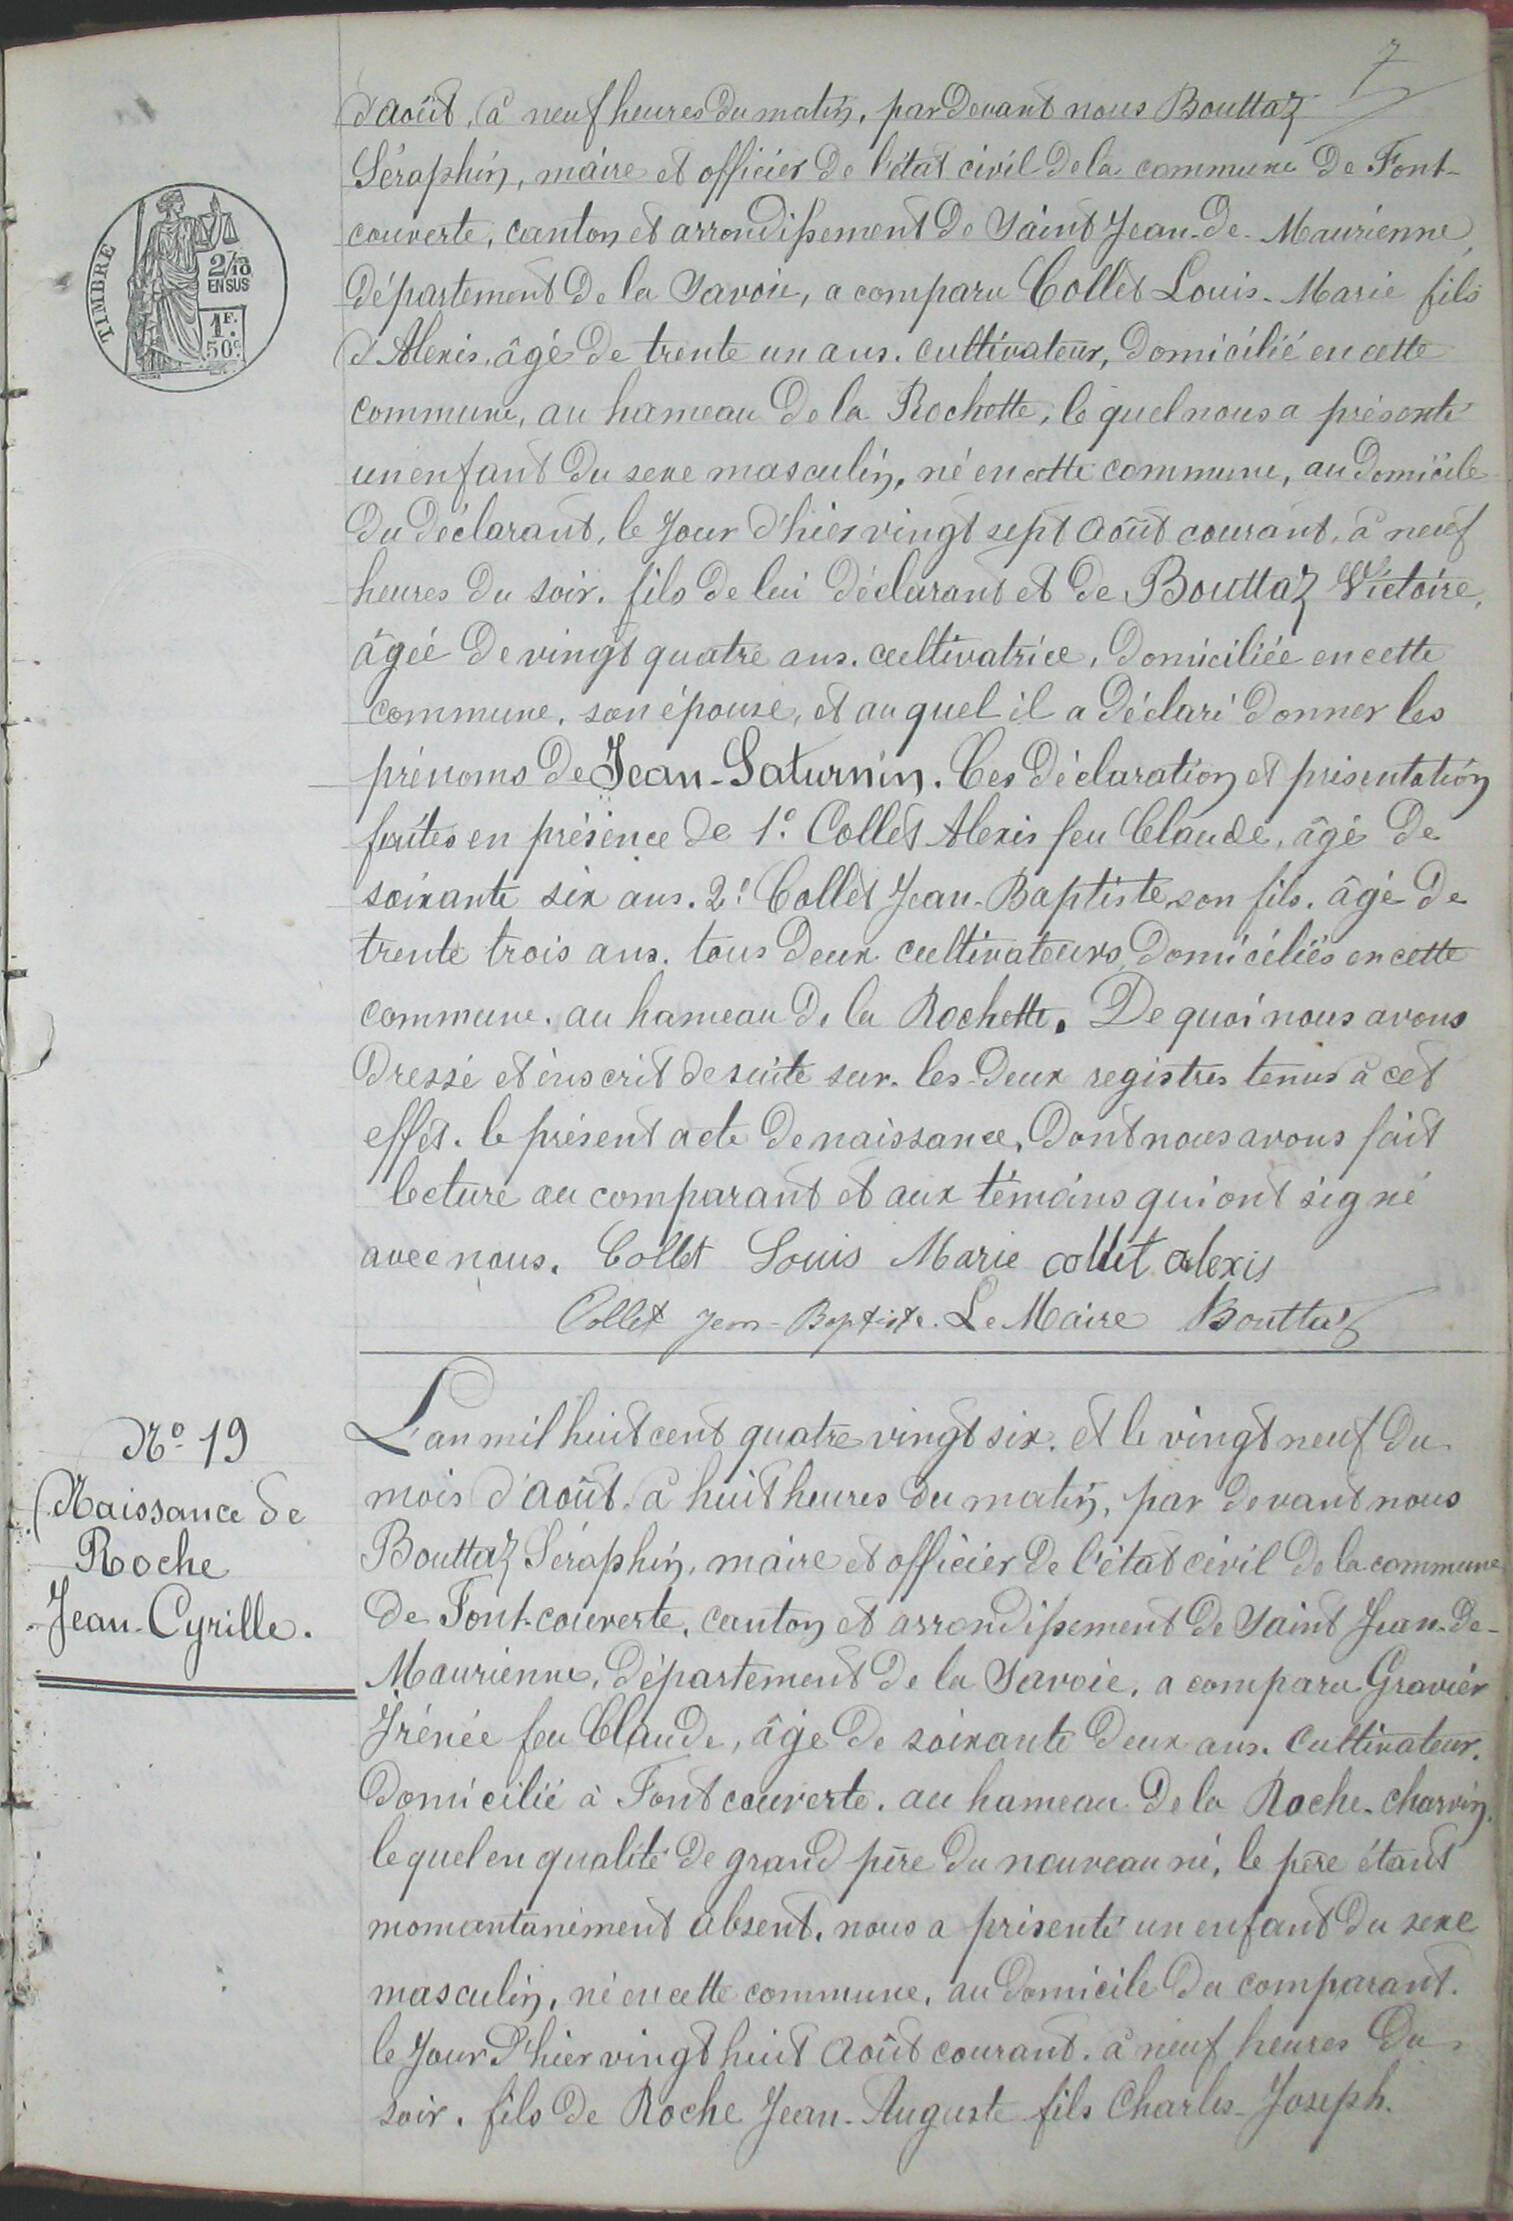 7
d'août, à neuf heures du matin, par devant nous Bouttaz
Séraphin, maire et officier de l'état civil de la commune de Font-
couverte, canton et arrondissement de Saint Jean-de-Maurienne,
département de la Savoie, a comparu Collet Louis-Marie fils
d'Alexis, âgé de trente un ans. cultivateur, domicilié en cette
commune, au hameau de la Rochette, le quel nous a présenté
un enfant du sexe masculin, né en cette commune, au domicile
du déclarant, le jour d'hier vingt sept août courant, à neuf
heures du soir. fils de lui déclarant et de Bouttaz Victoire,
âgée de vingt quatre ans. cultivatrice, domiciliée en cette
commune, son épouse, et au quel il a déclaré donner les
prénoms de Jean-Saturnin. Ces déclaration et présentation
faites en présence de 1° Collet Alexis feu Claude, âgé de
soixante six ans. 2° Collet Jean-Baptiste son fils. âgé de
trente trois ans. tous deux cultivateurs, domiciliés en cette
commune. au hameau de la Rochette. De quoi nous avons
dressé et inscrit de suite sur les deux registres tenus à cet
effet. le présent acte de naissance, dont nous avons fait
lecture au comparant et aux témoins qui ont signé
avec nous. Collet Louis Marie collet alexis
Collet Jean-Baptiste. Le Maire Bouttaz
TIMBRE
2/10
EN SUS
1F.
50c
N° 19
Naissance de
Roche
Jean-Cyrille.
L'an mil huit cent quatre vingt six. et le vingt neuf du
mois d'août. à huit heures du matin, par devant nous
Bouttaz Séraphin, maire et officier de l'état civil de la commune
de Font-couverte, canton et arrondissement de Saint Jean-de-
Maurienne, département de la Savoie, a comparu Gravier
Irénée feu Claude, âgé de soixante deux ans. cultivateur.
domicilié à Fontcouverte. au hameau de la Roche-charvin.
lequel en qualité de grand père du nouveau né, le père étant
momentanément absent. nous a présenté un enfant du sexe
masculin, né en cette commune, au domicile du comparant.
le jour d'hier vingt huit août courant. à neuf heures du
soir. fils de Roche Jean-Auguste fils Charles-Joseph.